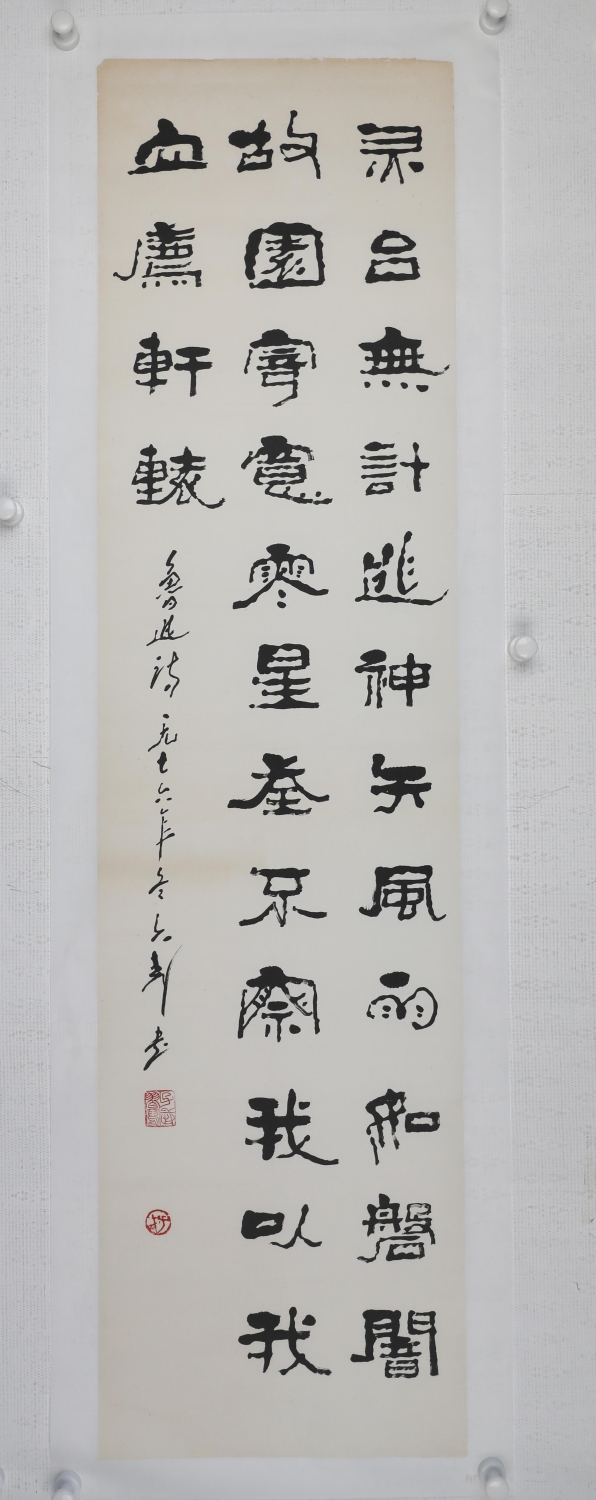 灵台無計逃神矢風雨如磐闇
故園寄意寒星荃不察我以我
血薦軒轅
魯迅詩一九七六年冬 書